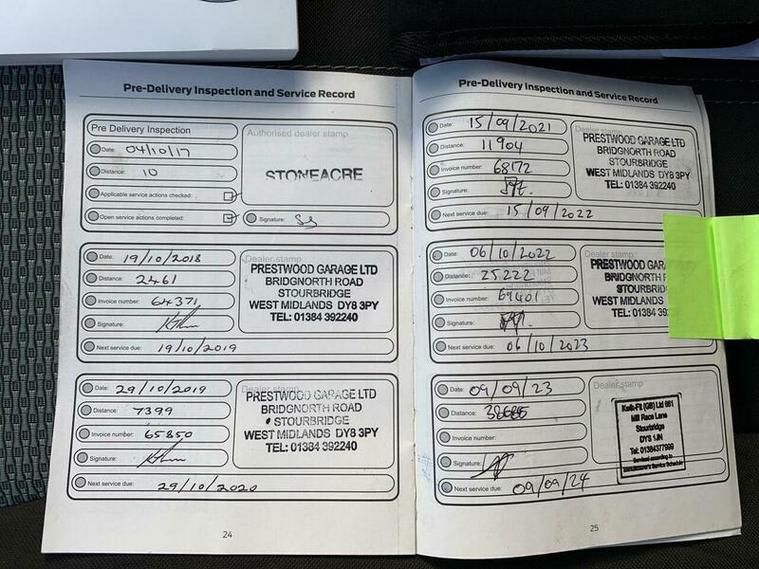 Pre-Delivery Inspection and Service Record
Pre Delivery Inspection
Date: 04/10/17
Distance: 10
Applicable service actions checked:
Open service actions completed:
Authorised dealer stamp
STONEACRE
Signature:
Date: 19/10/2018
Distance: 2461
Invoice number: 64371
Signature:
Next service due: 19/10/2019
Dealer stamp
PRESTWOOD GARAGE LTD
BRIDGNORTH ROAD
STOURBRIDGE
WEST MIDLANDS DY8 3PY
TEL: 01384 392240
Date: 29/10/2019
Distance: 7399
Invoice number: 65850
Signature:
Next service due: 29/10/2020
Dealer stamp
PRESTWOOD GARAGE LTD
BRIDGNORTH ROAD
STOURBRIDGE
WEST MIDLANDS DY8 3PY
TEL: 01384 392240
24
Pre-Delivery Inspection and Service Record
Date: 15/09/2021
Distance: 11904
Invoice number: 68172
Signature:
Next service due: 15/09/2022
Dealer stamp
PRESTWOOD GARAGE LTD
BRIDGNORTH ROAD
STOURBRIDGE
WEST MIDLANDS DY8 3PY
TEL: 01384 392240
Date: 06/10/2022
Distance: 25222
Invoice number: 69401
Signature:
Next service due: 06/10/2023
Dealer stamp
PRESTWOOD GARA
BRIDGNORTH
STOURBRID
WEST MIDLANDS
TEL: 01384 39
Date: 09/09/23
Distance:
Invoice number:
Signature:
Next service due: 09/09/24
Dealer stamp
Kwik-Fit (GB) Ltd 661
Mill Race Lane
Stourbridge
DY8 1JN
Tel: 01384377999
Serviced according to
Manufacturer's Service Schedule
25